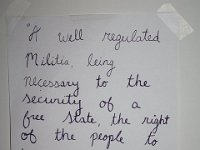 "A well regulated
Militia, being
necessary to the
security of a
free State, the right
of the people to